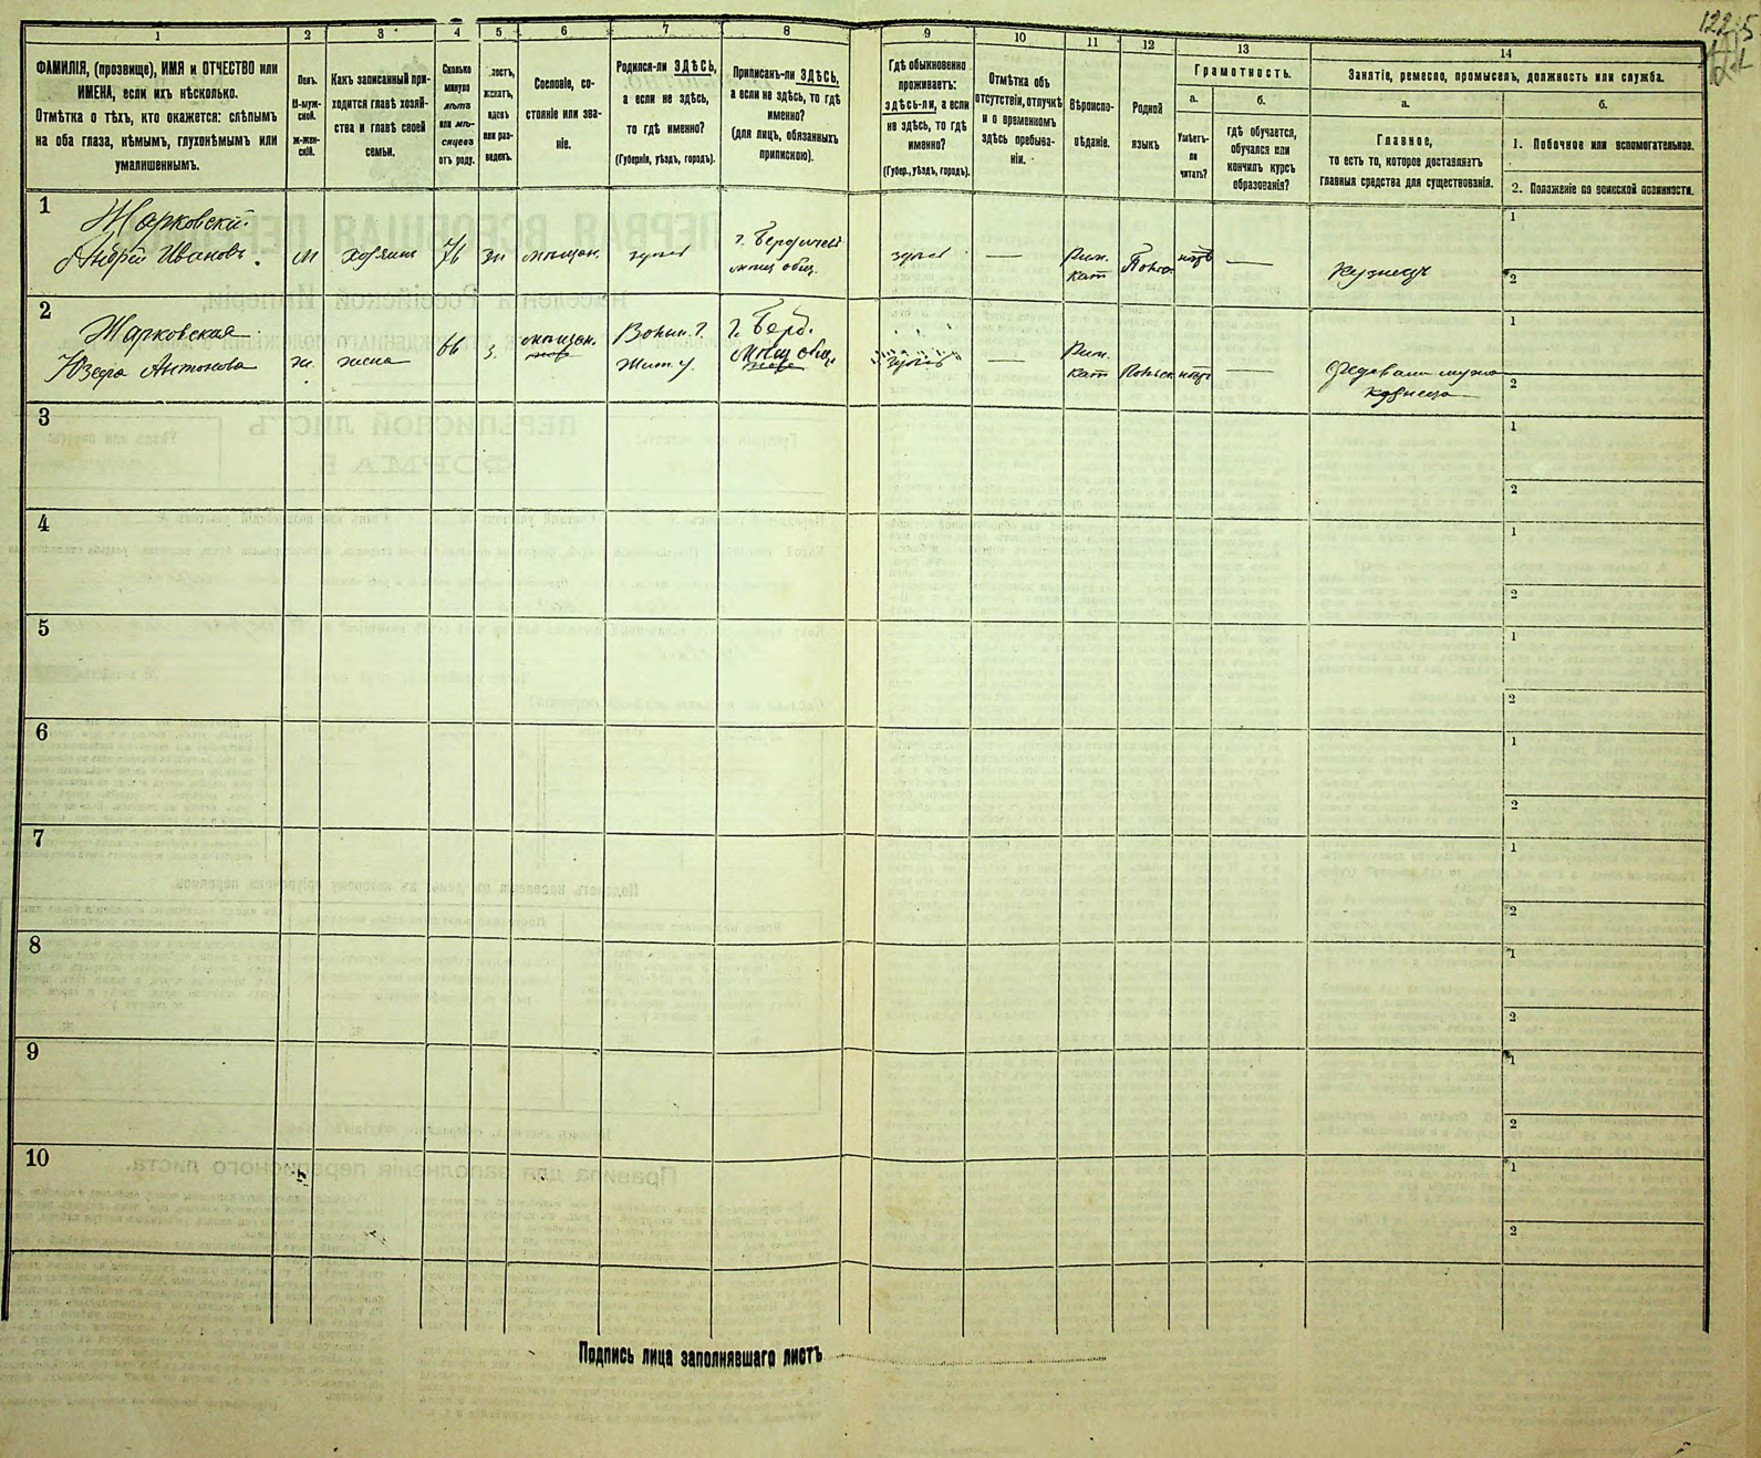 1225
1 2 3 4 5 6 7 8 9 10 11 12 13 14
ФАМИЛІЯ, (прозвище), ИМЯ и ОТЧЕСТВО или
ИМЕНА, если ихъ нѣсколько.
Отмѣтка о тѣхъ, кто окажется: слѣпымъ
на оба глаза, нѣмымъ, глухонѣмымъ или
умалишеннымъ.
Полъ.
М-муж-
ской.
Ж-жен-
скій.
Какъ записанный при-
ходится главѣ хозяй-
ства и главѣ своей
семьи.
Сколько
минуло
лѣтъ
или мѣ-
сяцевъ
отъ роду.
лостъ,
женатъ,
вдовъ
или раз-
веденъ.
Сословіе, со-
стояніе или зва-
ніе.
Родился-ли ЗДѢСЬ,
а если не здѣсь,
то гдѣ именно?
(Губернія, уѣздъ, городъ).
Приписанъ-ли ЗДѢСЬ,
а если не здѣсь, то гдѣ
именно?
(для лицъ, обязанныхъ
припискою).
Гдѣ обыкновенно
проживаетъ:
здѣсь-ли, а если
не здѣсь, то гдѣ
именно?
(Губер., уѣздъ, городъ).
Отмѣтка объ
отсутствіи, отлучкѣ
и о временномъ
здѣсь пребыва-
ніи.
Вѣроиспо-
вѣданіе.
Родной
языкъ
Грамотность.
а. б.
Умѣетъ-
ли
читать?
гдѣ обучается,
обучался или
кончилъ курсъ
образованія?
Занятіе, ремесло, промыселъ, должность или служба.
а. б.
Главное,
то есть то, которое доставляетъ
главныя средства для существованія.
1. Побочное или вспомогательное.
2. Положеніе по воинской повинности.
1
Жарковскій
Андрей Ивановъ.
м
хозяинъ
76
жн
мѣщан.
здѣсь
г. Бердичевъ
мѣщ общ.
здѣсь
—
Рим.
кат
Польс.
нѣтъ
—
Кузнецъ
1
2
2
Жарковская
Юзефа Антонова
ж.
жена
66
з.
мѣщан.
Волын. г.
Жит. у.
г. Берд.
мѣщ общ.
здѣсь
—
Рим.
кат
Польск
нѣтъ
—
при муже
кузнеца
1
2
3
1
2
4
1
2
5
1
2
6
1
2
7
1
2
8
1
2
9
1
2
10
1
2
Подпись лица заполнявшаго листъ